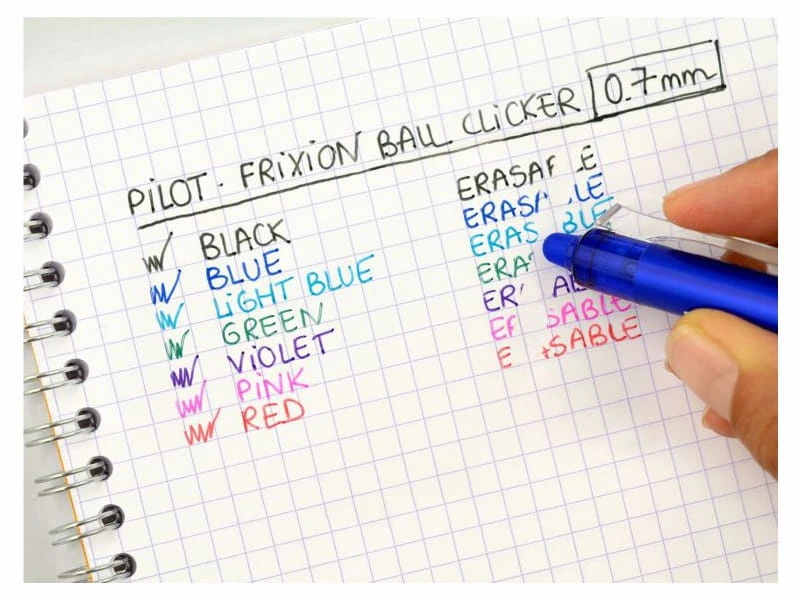 PILOT. FRIXION BALL CLICKER 0.7mm
BLACK
BLUE
LIGHT BLUE
GREEN
VIOLET
PINK
RED
ERASA E
ERASA LE
ERAS BLE
ERA
ER AB
ER SABLE
E SABLE